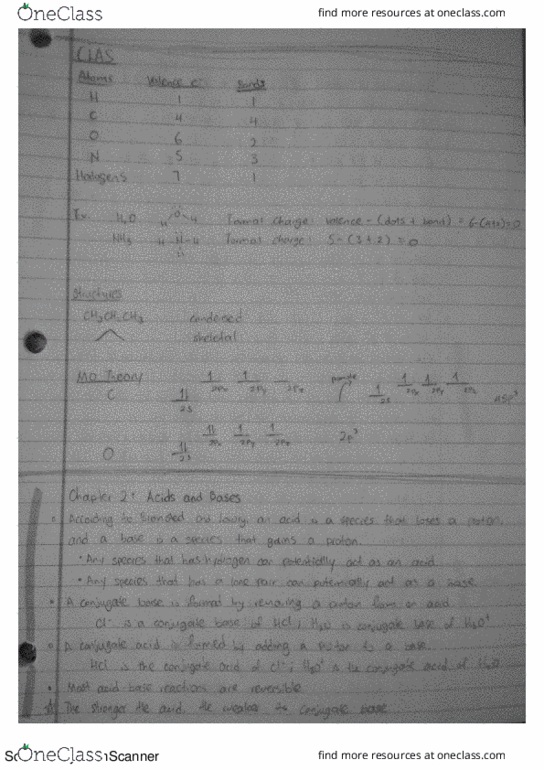 OneClass find more resources at oneclass.com
CLAS
Atoms Valence e⁻ Bonds
H 1 1
C 4 4
O 6 2
N 5 3
Halogens 7 1
Ex. H₂O H O H Formal charge: valence - (dots + bond) = 6-(4+2)=0
NH₃ H-N-H Formal charge: 5-(3+2)=0
H
Structures
CH₃CH₂CH₃ condensed
skeletal
MO Theory 1 1 promote 1 1 1
C 1l 2Px 2Py 2Pz 1 2Px 2Py 2Pz 4sp³
2s 2s
1l 1 1
O 1l 2Px 2Py 2Pz 2p³
2s
Chapter 2: Acids and Bases
According to Bronsted and lowry, an acid is a species that loses a proton,
and a base is a species that gains a proton.
• Any species that has hydrogen can potentially act as an acid
• Any species that has a lone pair can potentially act as a base
• A conjugate base is formed by removing a proton from an acid
Cl⁻ is a conjugate base of HCl; H₂O is conjugate base of H₃O⁺
A conjugate acid is formed by adding a proton to a base
HCl is the conjugate acid of Cl⁻; H₃O⁺ is the conjugate acid of H₂O
• Most acid base reactions are reversible
The stronger the acid, the weaker its conjugate base
OneClass Scanner find more resources at oneclass.com